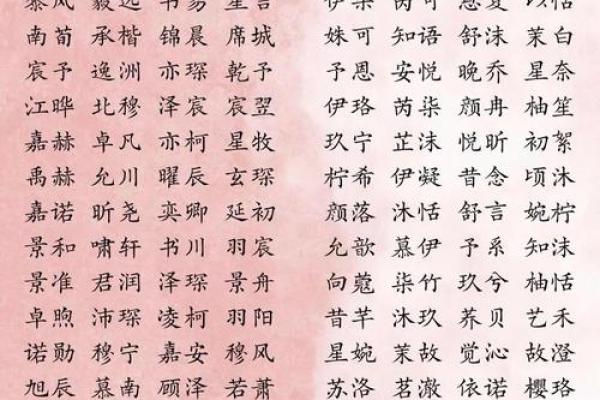 南荀 承楷 锦晨 席城 姝可 知语 舒沫 茉白
宸予 逸洲 亦琛 乾予 予恩 安悦 晚乔 星奈
江晔 北穆 泽宸 宸翌 伊珞 芮柒 颜冉 柚笙
嘉赫 卓凡 亦柯 星牧 玖宁 芷沫 悦昕 初絮
禹赫 允川 曜辰 玄琛 柠希 伊凝 昔念 顷沐
嘉诺 昕尧 奕卿 延初 颜落 沐恬 舒言 婉柠
景和 啸轩 书川 羽宸 允歆 慕伊 予系 知沫
景淮 君润 泽琛 景舟 向蔻 柒竹 玖兮 柚恬
卓煦 沛琛 凌柯 羽阳 昔芊 沐玖 荞贝 艺禾
诺勋 穆宁 嘉安 穆风 星婉 茉故 觉沁 故澄
旭辰 慕南 顾泽 若萧 苏洛 茗澈 依诺 樱珞